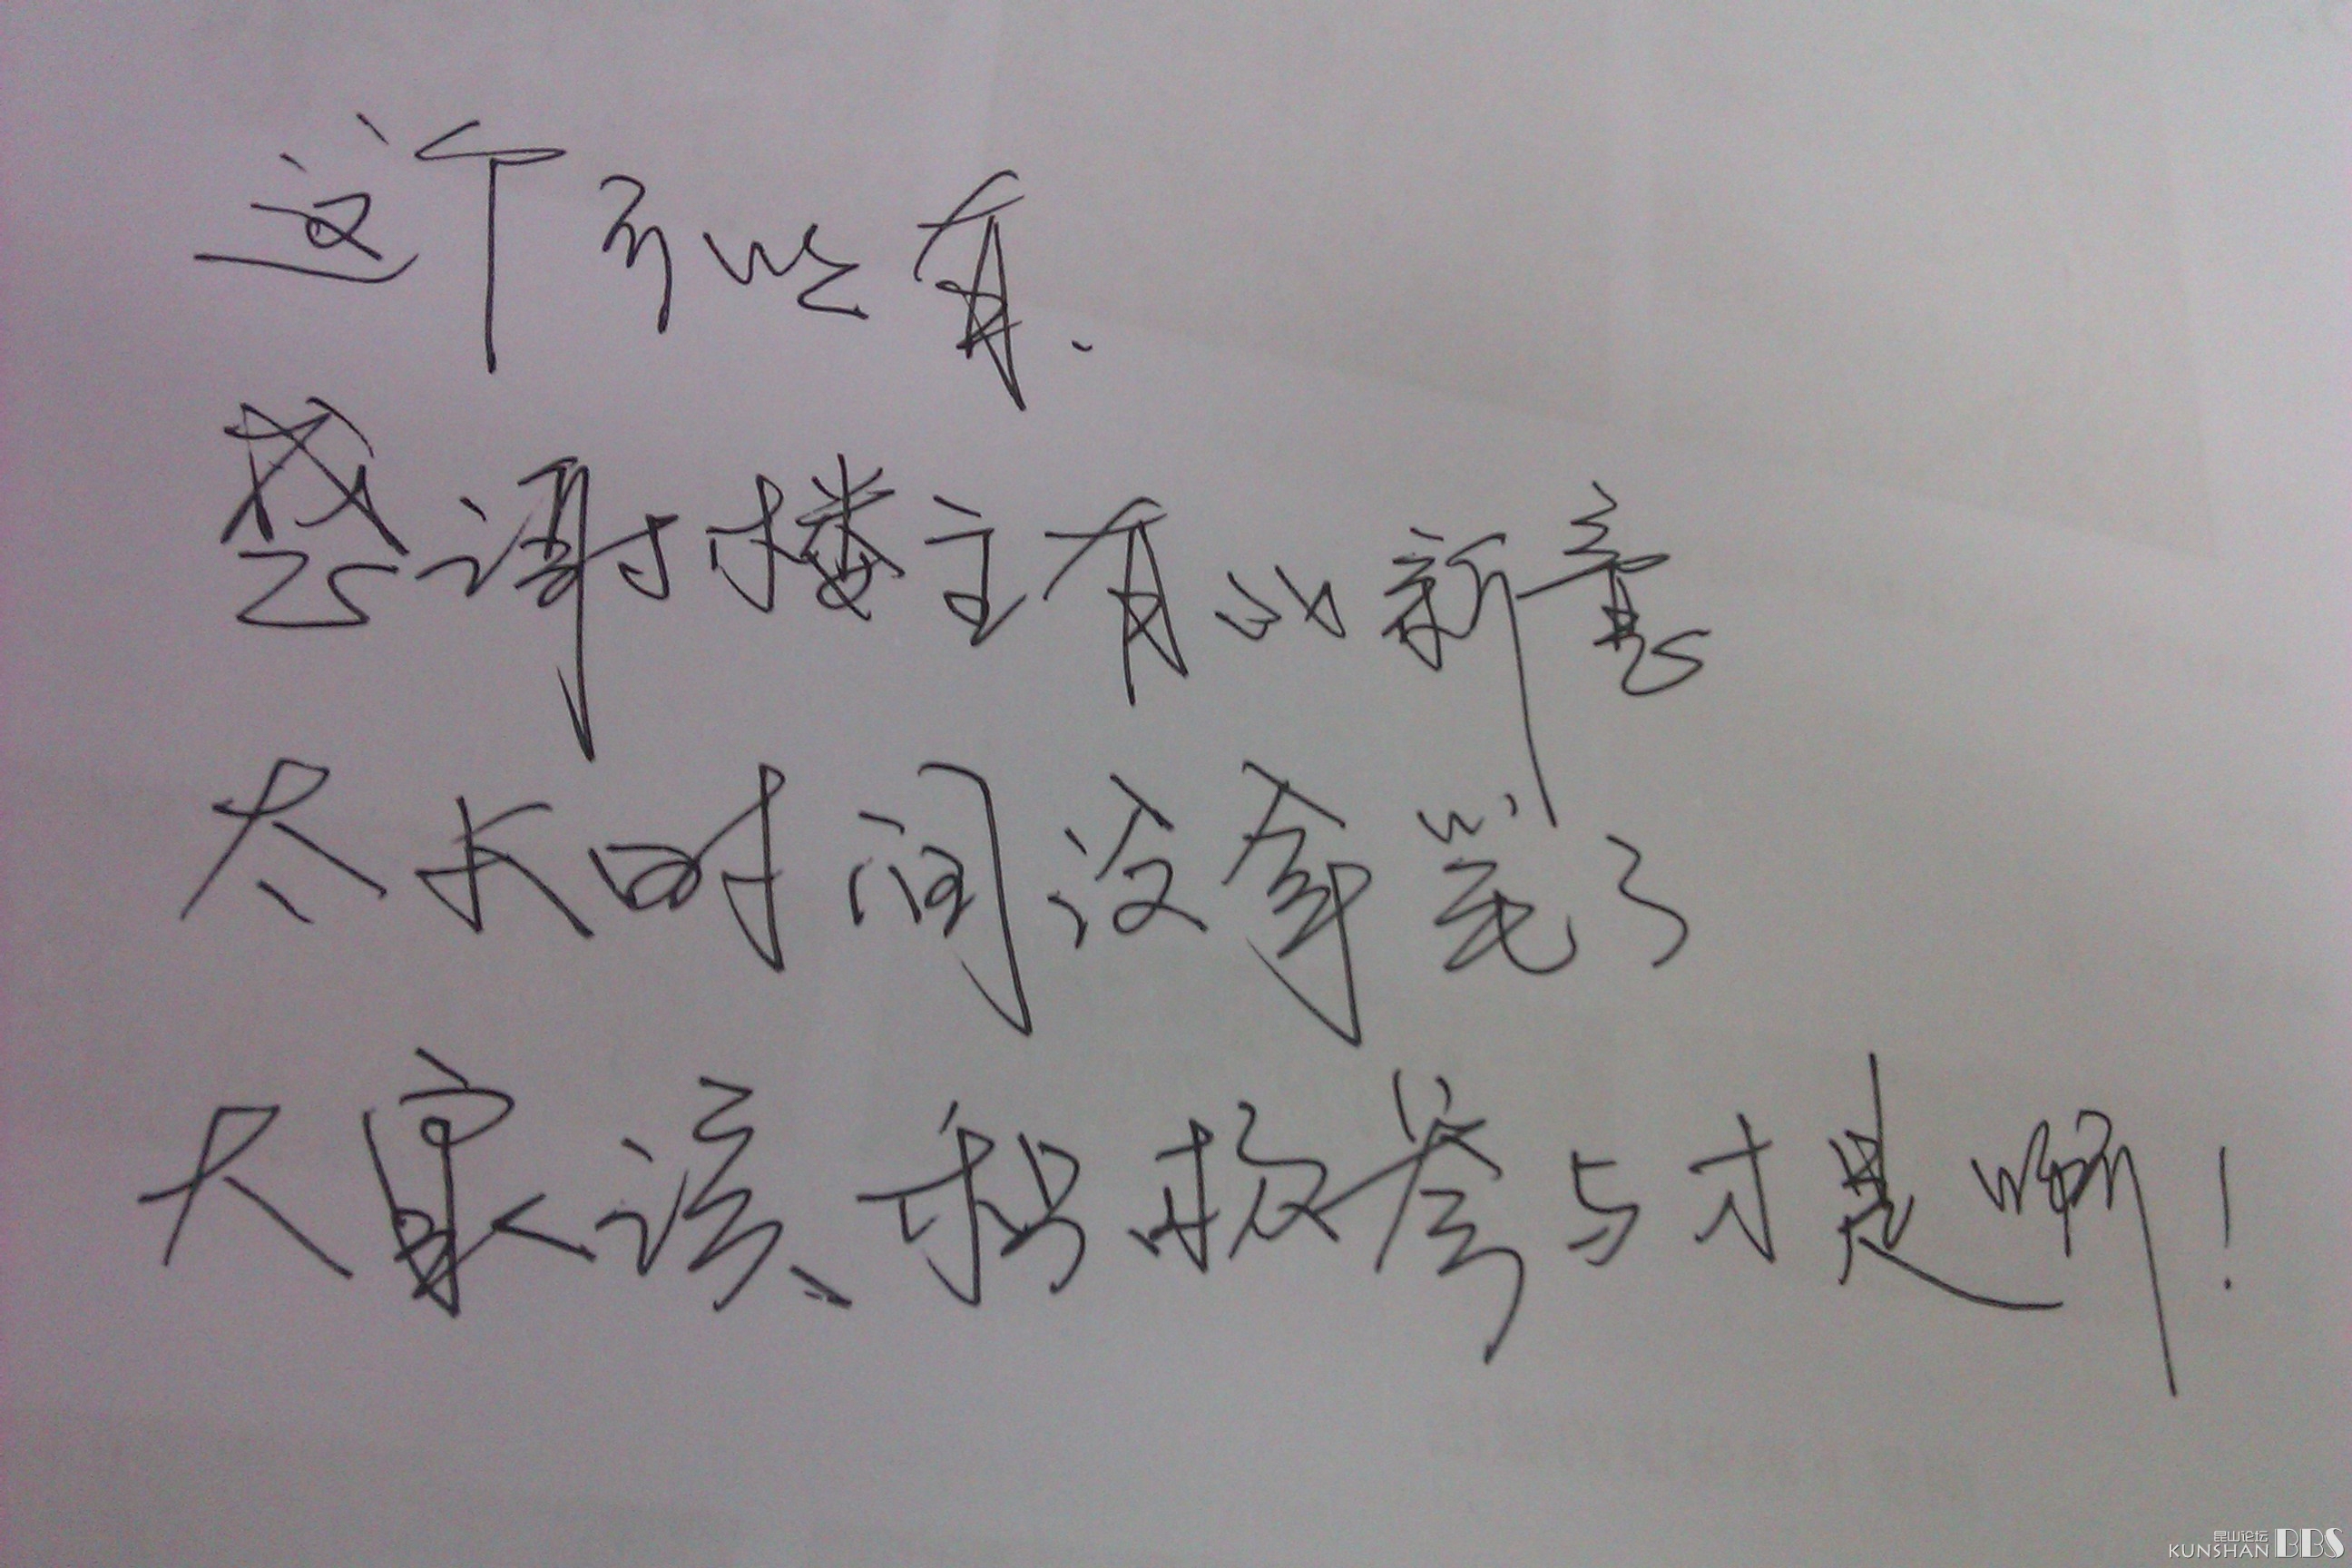 这个可以有.
感谢楼主有以新意
太长时间没拿笔了
大家该、积极参与才是啊!
昆山论坛 BBS
KUNSHAN